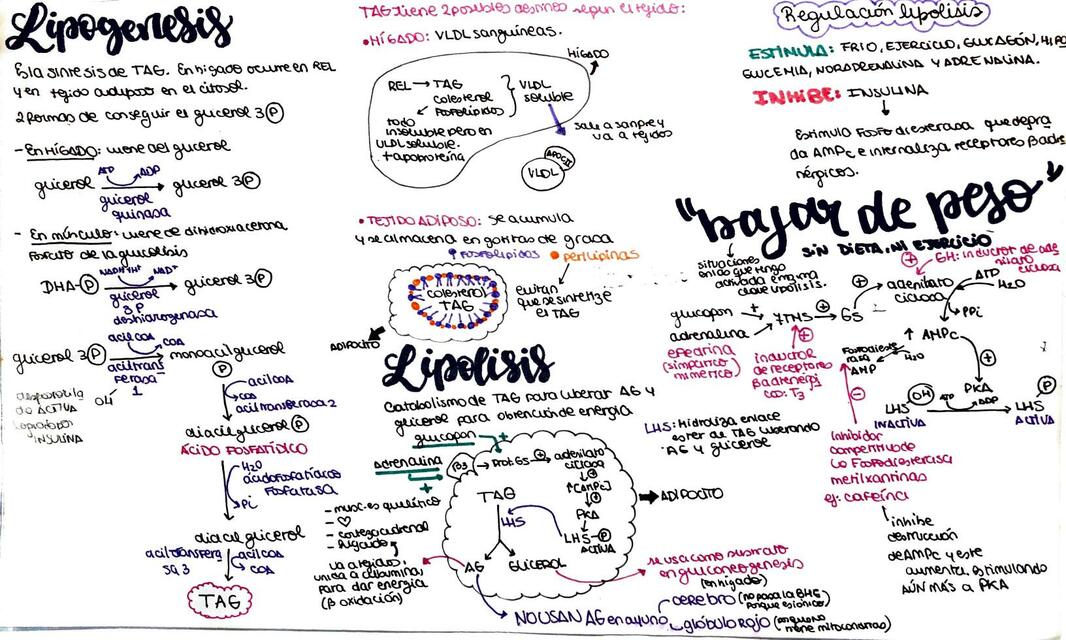 Lipogenesis
Es la sintesis de TAG. En hígado ocurre en REL
y en tejido adiposo en el citosol.
2 formas de conseguir el glicerol 3 P
- En HÍGADO: viene del glicerol
ATP ADP
glicerol glicerol 3 P
glicerol
quinasa
- En músculo: viene de dihidroxiacetona
fosfato de la glucolisis
NADH+H+ NAD+
DHA-P glicerol 3 P
glicerol
3 P
deshidrogenasa
acilCOA COA
glicerol 3 P monoacilglicerol
P
aciltrans
ferasa
1
OH
de ACTIVA
INSULINA
acilCOA
COA
aciltransferasa 2
diacilglicerol P
ÁCIDO FOSFATÍDICO
H2O
ácido fosfatídico
fosfatasa
Pi
diacilglicerol
aciltransfera
sa 3
acilCOA
COA
TAG
TAG tiene 2 posibles destinos según el tejido:
• HÍGADO: VLDL sanguíneas.
HÍGADO
REL → TAG
colesterol
fosfolípidos
VLDL
soluble
todo
insoluble pero en
VLDL soluble.
+ apoproteína
sale a sangre y
va a tejidos
APOCII
VLDL
• TEJIDO ADIPOSO: se acumula
y se almacena en gotitas de grasa
fosfolípidos perilipinas
colesterol
TAG
evitan
que se sintetize
el TAG
ADIPOCITO
Lipolisis
Catabolismo de TAG para liberar AG y
glicerol para obtención de energía
glucagon +
adrenalina +
β3 → Prot Gs + adenilato
ciclasa
+
↑[AMPc]
+
PKA
LHS-P
ACTIVA
TAG
LHS
AG GLICEROL
ADIPOCITO
- musc. esquelético
- ♡
- corteza adrenal
- hígado
va a tejidos,
unido a albumina,
para dar energía
(β oxidación)
se usa como sustrato
en gluconeogenesis
(en hígado)
NO USAN AG en ayuno
cerebro (no pasa la BHE
porque es iónico)
glóbulo rojo (porque no
tiene mitocondrias)
Regulación lipolisis
ESTÍMULA: FRIO, EJERCICIO, GLUCAGÓN, HIPO
GLICEMIA, NORADRENALINA Y ADRENALINA.
INHIBE: INSULINA
Estimula Fosfodiesterasa que degra
da AMPc e internaliza receptores βadre
nérgicos.
"bajar de peso"
SIN DIETA, NI EJERCICIO
situaciones
en la que tengo
activada enzima
clave lipolisis.
+ GH: inductor de ade
nilato
ciclasa
glucagon +
adrenalina
7TMS + GS +
adenilato
ciclasa
ATP
H2O
PPi
↑ AMPc
Fosfodieste
rasa
H2O
AMP
efedrina
(simpatico
mimetico)
+
inductor
de receptores
βadrenergi
cos: T3
+
PKA
OH ATP ADP P
LHS LHS
INACTIVA ACTIVA
LHS: Hidroliza enlace
ester de TAG liberando
AG y glicerol
-
Inhibidor
competitivo de
la Fosfodiesterasa
metilxantinas
ej: cafeína
inhibe
destrucción
de AMPc y este
aumenta, estimulando
AÚN MÁS a PKA